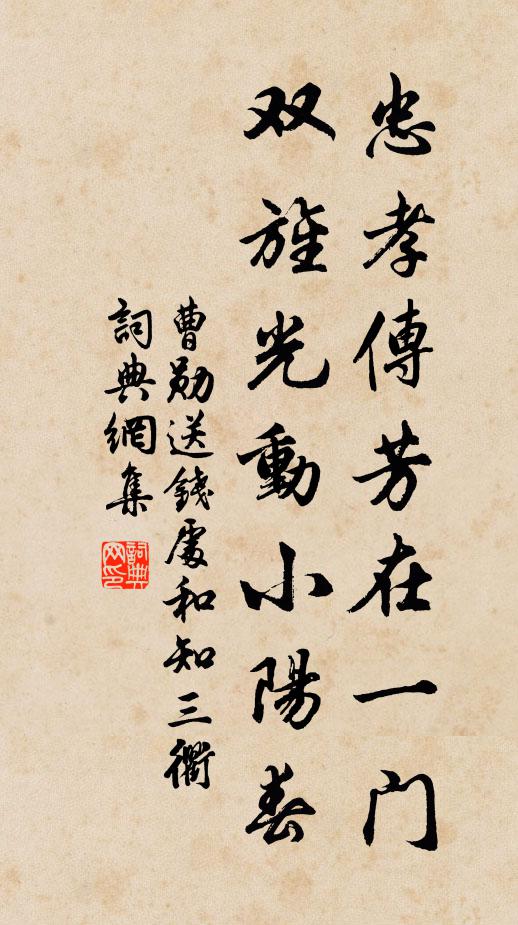 忠孝傳芳在一门
双旌光動小陽春
曹勛送錢處和知三衢
詞典網集
詞典网印